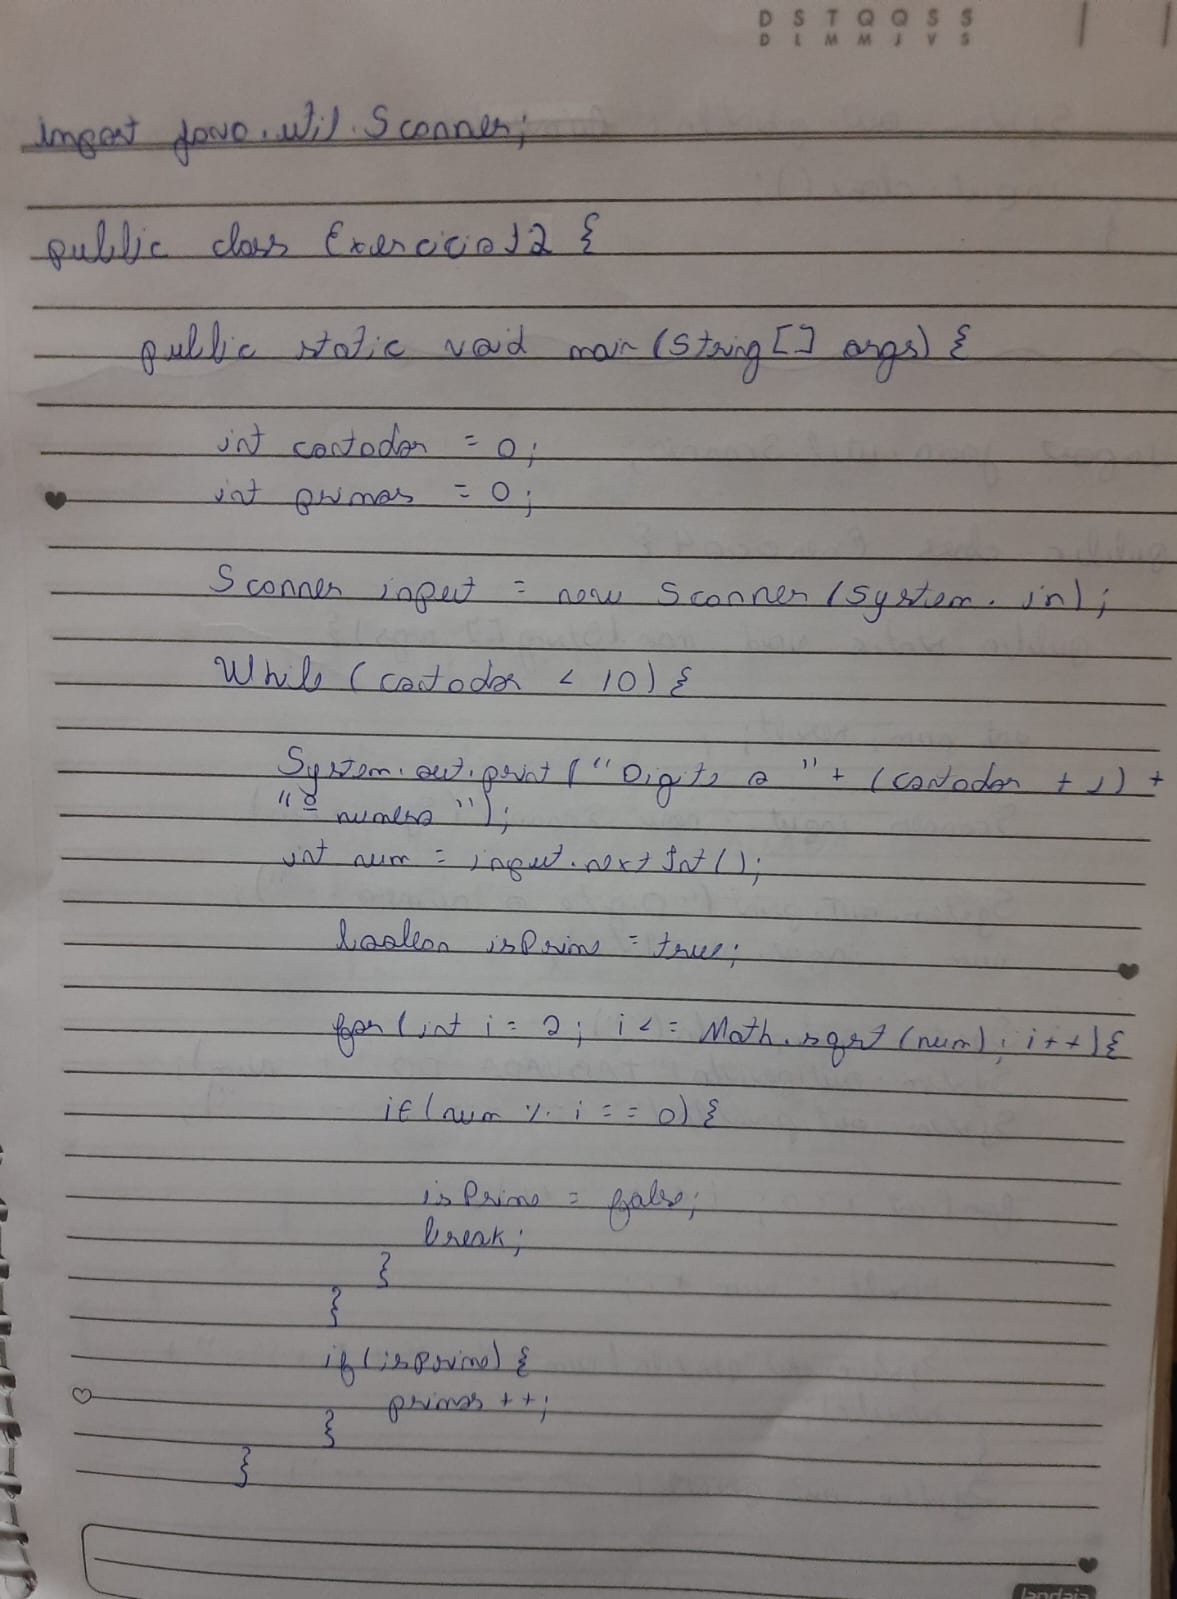 D S T Q Q S S
D L M M J V S
import java.util.Scanner;
public class Exercicio12 {
public static void main (String [] args) {
int contador = 0;
int primos = 0;
Scanner input = new Scanner (System.in);
While (contador < 10) {
System.out.print ("Digite o " + (contador + 1) +
"º numero ");
int num = input.nextInt();
boolean isPrime = true;
for (int i = 2; i <= Math.sqrt (num); i++) {
if (num % i == 0) {
isPrime = false;
break;
}
}
if (isPrime) {
primos ++;
}
}